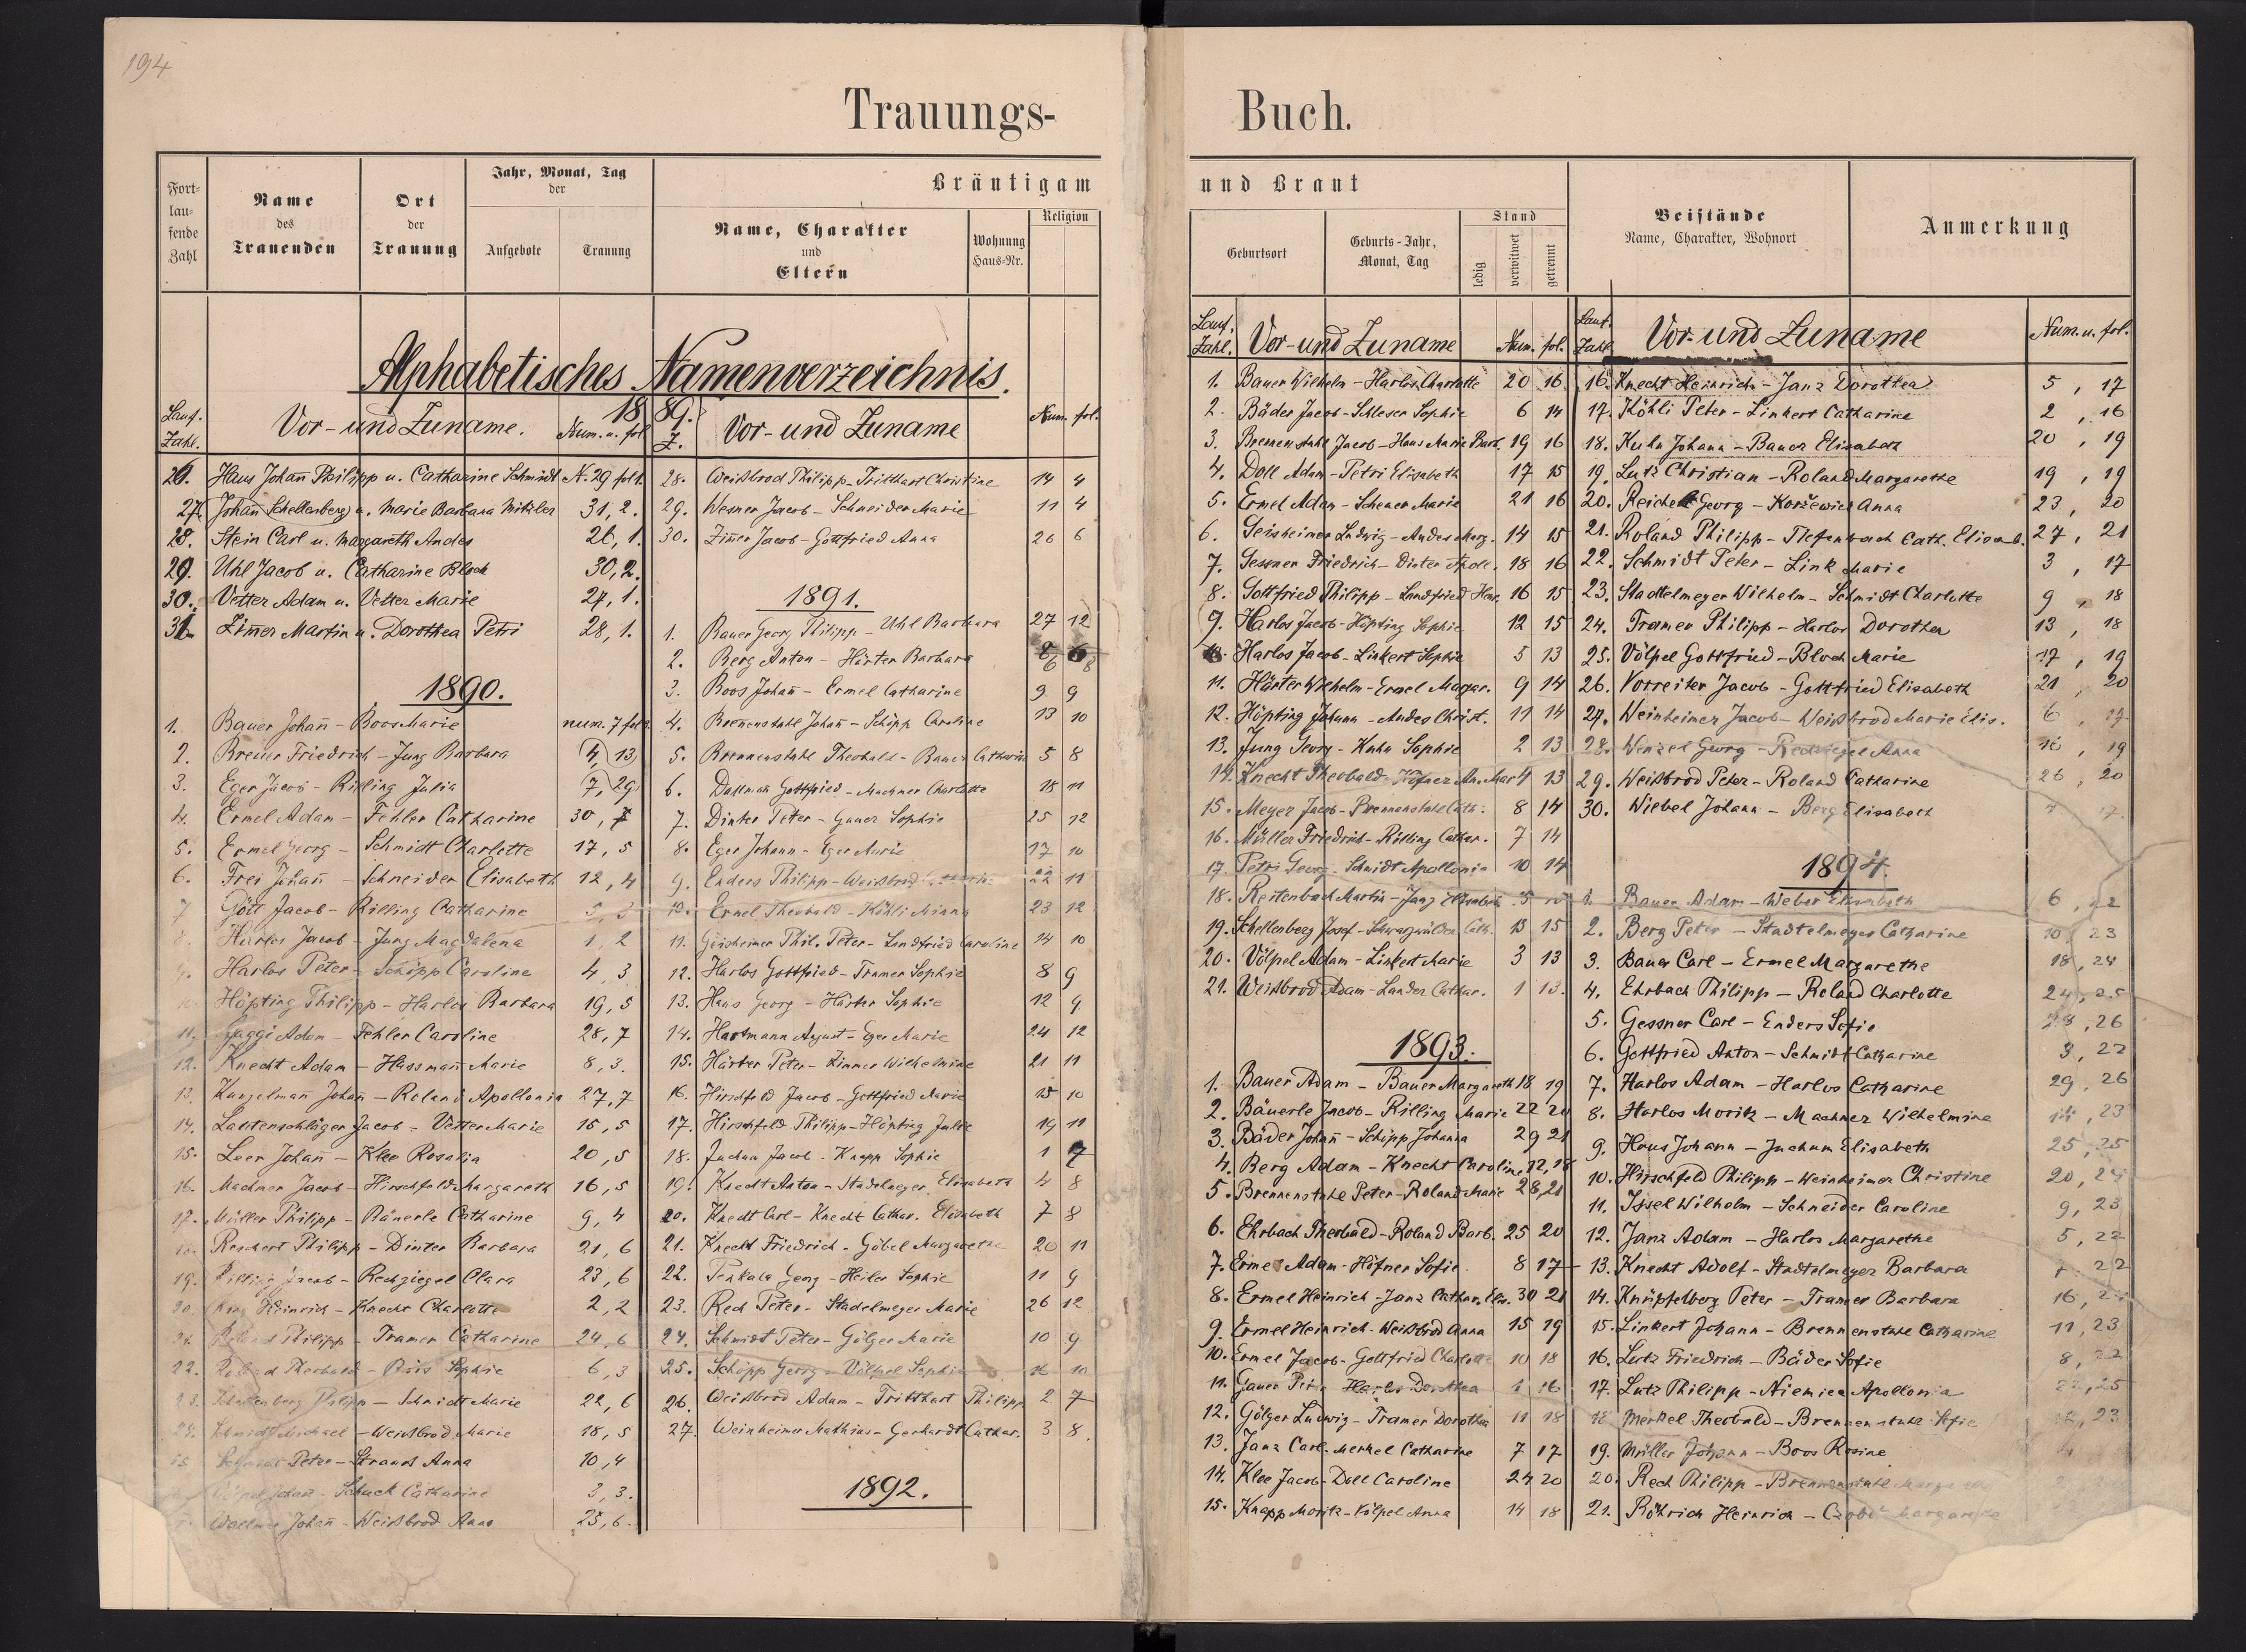 194
Trauungs-
Fort-
lau-
fende
Zahl
Name
des
Trauenden
Ort
der
Trauung
Jahr, Monat, Tag
der
Aufgebote
Trauung
Bräutigam
Name, Charakter
und
Eltern
Wohnung
Haus-Nr.
Religion
Alphabetisches Namenverzeichnis.
1889.
Lauf. Zahl. Vor- und Zuname. Num. u. fol
26. Haus Johañ Philipp u. Catharine Schmidt N. 29 fol 1.
27. Johañ Schellenberg u. Marie Barbara 31, 2.
28. Stein Carl u. Margareth Andes 26, 1.
29. Uhl Jacob u. Catharine Bloch 30, 2.
30. Vetter Adam u. Vetter Marie 27, 1.
31. Zim̄er Martin u. Dorothea Petri 28, 1.
1890.
1. Bauer Johañ - Boos Marie num. 7 fol
2. Breuer Friedrich - Jung Barbara 4, 13
3. Eger Jacob - Rilling Julia 7, 29
4. Ermel Adam - Fehler Catharine 30, 7
5. Ermel Georg - Schmidt Charlotte 17, 5
6. Frei Johañ - Schneider Elisabeth 12, 4
7 Gött Jacob - Rilling Catharine 5, 3
Harlos Jacob - Jung Magdalena 1, 2
Harlos Peter - Schöpp Caroline 4, 3
Höpting Philipp - Harlos Barbara 19, 5
11. Jaggi Adam - Fehler Caroline 28, 7
12. Knecht Adam - Hassmañ Marie 8, 3.
13. Johañ - Roland Apollonia 27, 7
14. Lautenschläger Jacob - Vetter Marie 15, 5
15. Leer Johañ - Klee Rosalia 20, 5
16. Machmer Jacob - Hirschfeld Margareth 16, 5
17. Müller Philipp - Bäuerle Catharine 9, 4
Reichert Philipp - Dinter Barbara 21, 6
19. Rilling Jacob - Rechziegel Clara 23, 6
20. Heinrich - Knecht Charlotte 2, 2
Philipp - Tramer Catharine 24, 6
22. Roland Theobald - Sophie 6, 3
23. Schellenberg Philipp - Schmidt Marie 22, 6
24. Schmidt Michael - Weißbrod Marie 18, 5
Peter - Strauss Anna 10, 4
Johañ - Schuck Catharine 3, 3.
Johañ - Weißbrod Anna 25, 6.
Z. Vor- und Zuname Num. fol.
28. Weißbrod Philipp - Tritthart Christine 14 4
29. Wesner Jacob - Schneider Marie 11 4
30. Zim̄er Jacob - Gottfried Anna 26 6
1891.
1. Bauer Georg Philipp - Uhl Barbara 27 12
2. Berg Anton - Härter Barbara 6 8
3. Boos Johañ - Ermel Catharine 9 9
4. Breñenstuhl Johañ - Schöpp Caroline 13 10
5. Brennenstuhl Theobald - Bauer Catharin 5 8
6. Dallman Gottfried - Machmer Charlotte 18 11
7. Dinter Peter - Gauer Sophie 25 12
8. Eger Johann - Eger Marie 17 10
9. Enders Philipp - Weißbrod 22 11
10. Ermel Theobald - Köhli Minna 23 12
11. Geisheimer Phil. Peter - Landfried Caroline 14 10
12. Harlos Gottfried - Tramer Sophie 8 9
13. Haus Georg - Härter Sophie 12 9
14. Hartmann August - Eger Marie 24 12
15. Härter Peter - Zimmer Wilhelmine 21 11
16. Hirschfeld Jacob - Gottfried Marie 15 10
17. Hirschfeld Philipp - Höpting Julie 19 11
18. Juchum Jacob - Knapp Sophie 1 7
19. Knecht Anton - Stadelmeyer Elisabeth 4 8
20. Knecht Carl - Knecht Cathar. Elisabeth 7 8
21. Knecht Friedrich - Göbel Margarethe 20 11
22. Georg - Heiler Sophie 11 9
23. Rech Peter - Stadelmeyer Marie 26 12
24. Schmidt Peter - Gölger Marie 10 9
25. Schöpp Georg - Völpel Sophie 16 10
26. Weißbrod Adam - Tritthart Philipp 2 7
27. Weinheimer Mathias - Gerhardt Cathar. 3 8
1892.
Buch.
und Braut
Geburtsort
Geburts-Jahr,
Monat, Tag
Stand
ledig
verwitwet
getrennt
Beistände
Name, Charakter, Wohnort
Anmerkung
Lauf. Zahl. Vor- und Zuname Num. fol.
1. Bauer Wilhelm - Harlos Charlotte 20 16
2. Bäder Jacob - Schleser Sophie 6 14
3. Brennenstuhl Jacob - Haus Marie Barb. 19 16
4. Doll Adam - Petri Elisabeth 17 15
5. Ermel Adam - Scherer Marie 21 16
6. Geisheimer Ludwig - Andes Marg. 14 15
7. Gessner Friedrich - Dinter Apoll. 18 16
8. Gottfried Philipp - Landfried Henr. 16 15
9. Harlos Jacob - Höpting Sophie 12 15
10. Harlos Jacob - Linkert Sophie 5 13
11. Härter Wilhelm - Ermel Margar. 9 14
12. Höpting Johann - Andes Christ. 11 14
13. Jung Georg - Kuhn Sophie 2 13
14. Knecht Theobald - Höfner An. Mar 4 13
15. Meyer Jacob - Brennenstuhl Cath. 8 14
16. Müller Friedrich - Rilling Cathar. 7 14
17. Petri Georg - Schmidt Apollonia 10 14
18. Reitenbach Martin - Janz Elisabeth 15
19. Schellenberg Josef - Schwarzwälder Cath. 13 15
20. Völpel Adam - Linkert Marie 3 13
21. Weißbrod Adam - Lander Cathar. 1 13.
1893.
1. Bauer Adam - Bauer Margareth 18 19
2. Bäuerle Jacob - Rilling Marie 22 20
3. Bäder Johañ - Schöpp Johanna 29 21
4. Berg Adam - Knecht Caroline 12, 18
5. Brennenstuhl Peter - Roland Marie 28, 21
6. Ehrbach Theobald - Roland Barb. 25 20
7. Ermel Adam - Höfner Sofie 8 17
8. Ermel Heinrich - Janz Cathar. Elis. 30 21
9. Ermel Heinrich - Weißbrod Anna 15 19
10. Ermel Jacob - Gottfried Charlotte 10 18
11. Gauer Peter Harlos Dorothea 1 16
12. Gölger Ludwig - Tramer Dorothea 11 18
13. Janz Carl - Merkel Catharine 7 17
14. Klee Jacob - Doll Caroline 24 20
15. Knapp Moritz - Völpel Anna 14 18
Lauf. Zahl Vor- und Zuname Num. u. fol.
16. Knecht Heinrich - Janz Dorothea 5, 17
17. Köhli Peter - Linkert Catharine 2, 16
18. Kuhn Johann - Bauer Elisabeth 20, 19
19. Lutz Christian - Roland Margarethe 19, 19
20. Reichelt Georg - Koržewich Anna 23, 20
21. Roland Philipp - Tiefenbach Cath. Elisab. 27, 21
22. Schmidt Peter - Link Marie 3, 17
23. Stadtelmeyer Wilhelm - Schmidt Charlotte 9, 18
24. Tramer Philipp - Harlos Dorothea 13, 18
25. Völpel Gottfried - Bloch Marie 17, 19
26. Vorreiter Jacob - Gottfried Elisabeth 21, 20
27. Weinheimer Jacob - Weißbrod Marie Elis. 6, 17
28. Wenzel Georg - Rechziegel Anna 16, 19
29. Weißbrod Peter - Roland Catharine 26, 20
30. Wiebel Johann - Berg Elisabeth 4 17
1894.
1. Bauer Adam - Weber Elisabeth 6, 22
2. Berg Peter - Stadtelmeyer Catharine 10, 23
3. Bauer Carl - Ermel Margarethe 18, 24
4. Ehrbach Philipp - Roland Charlotte 24, 25
5. Gessner Carl - Enders Sofie 28, 26
6. Gottfried Anton - Schmidt Catharine 3, 22
7. Harlos Adam - Harlos Catharine 29, 26
8. Harlos Moritz - Machmer Wilhelmine 14, 23
9. Haus Johann - Juchum Elisabeth 25, 25
10. Hirschfeld Philipp - Weinheimer Christine 20, 24
11. Issel Wilhelm - Schneider Caroline 9, 23
12. Janz Adam - Harlos Margarethe 5, 22
13. Knecht Adolf - Stadtelmeyer Barbara 22
14. Knüpfelberg Peter - Tramer Barbara 16,
15. Linkert Johann - Brennenstuhl Catharine 11, 23
16. Lutz Friedrich - Bäder Sofie 8, 22
17. Lutz Philipp - Niemiec Apollonia 25
18 Merkel Theobald - Brennenstuhl Sofie 23
19. Müller Johann - Boos Rosine
20. Rech Philipp - Brennenstuhl
21. Röhrich Heinrich - Margarethe